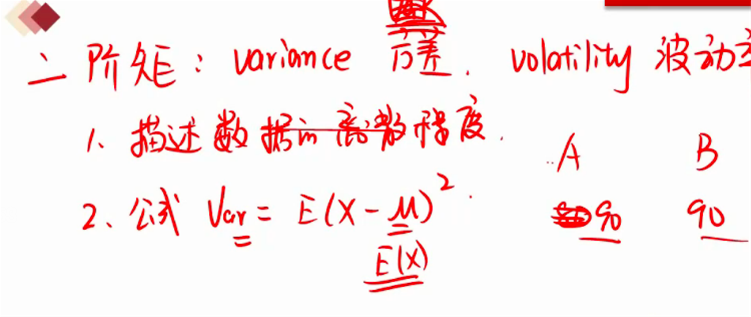 二阶矩：variance 方差. volatility 波动
1、描述数据的离散程度.
A B
2、公式 Var = E(X-μ)²
90 90
E(X)